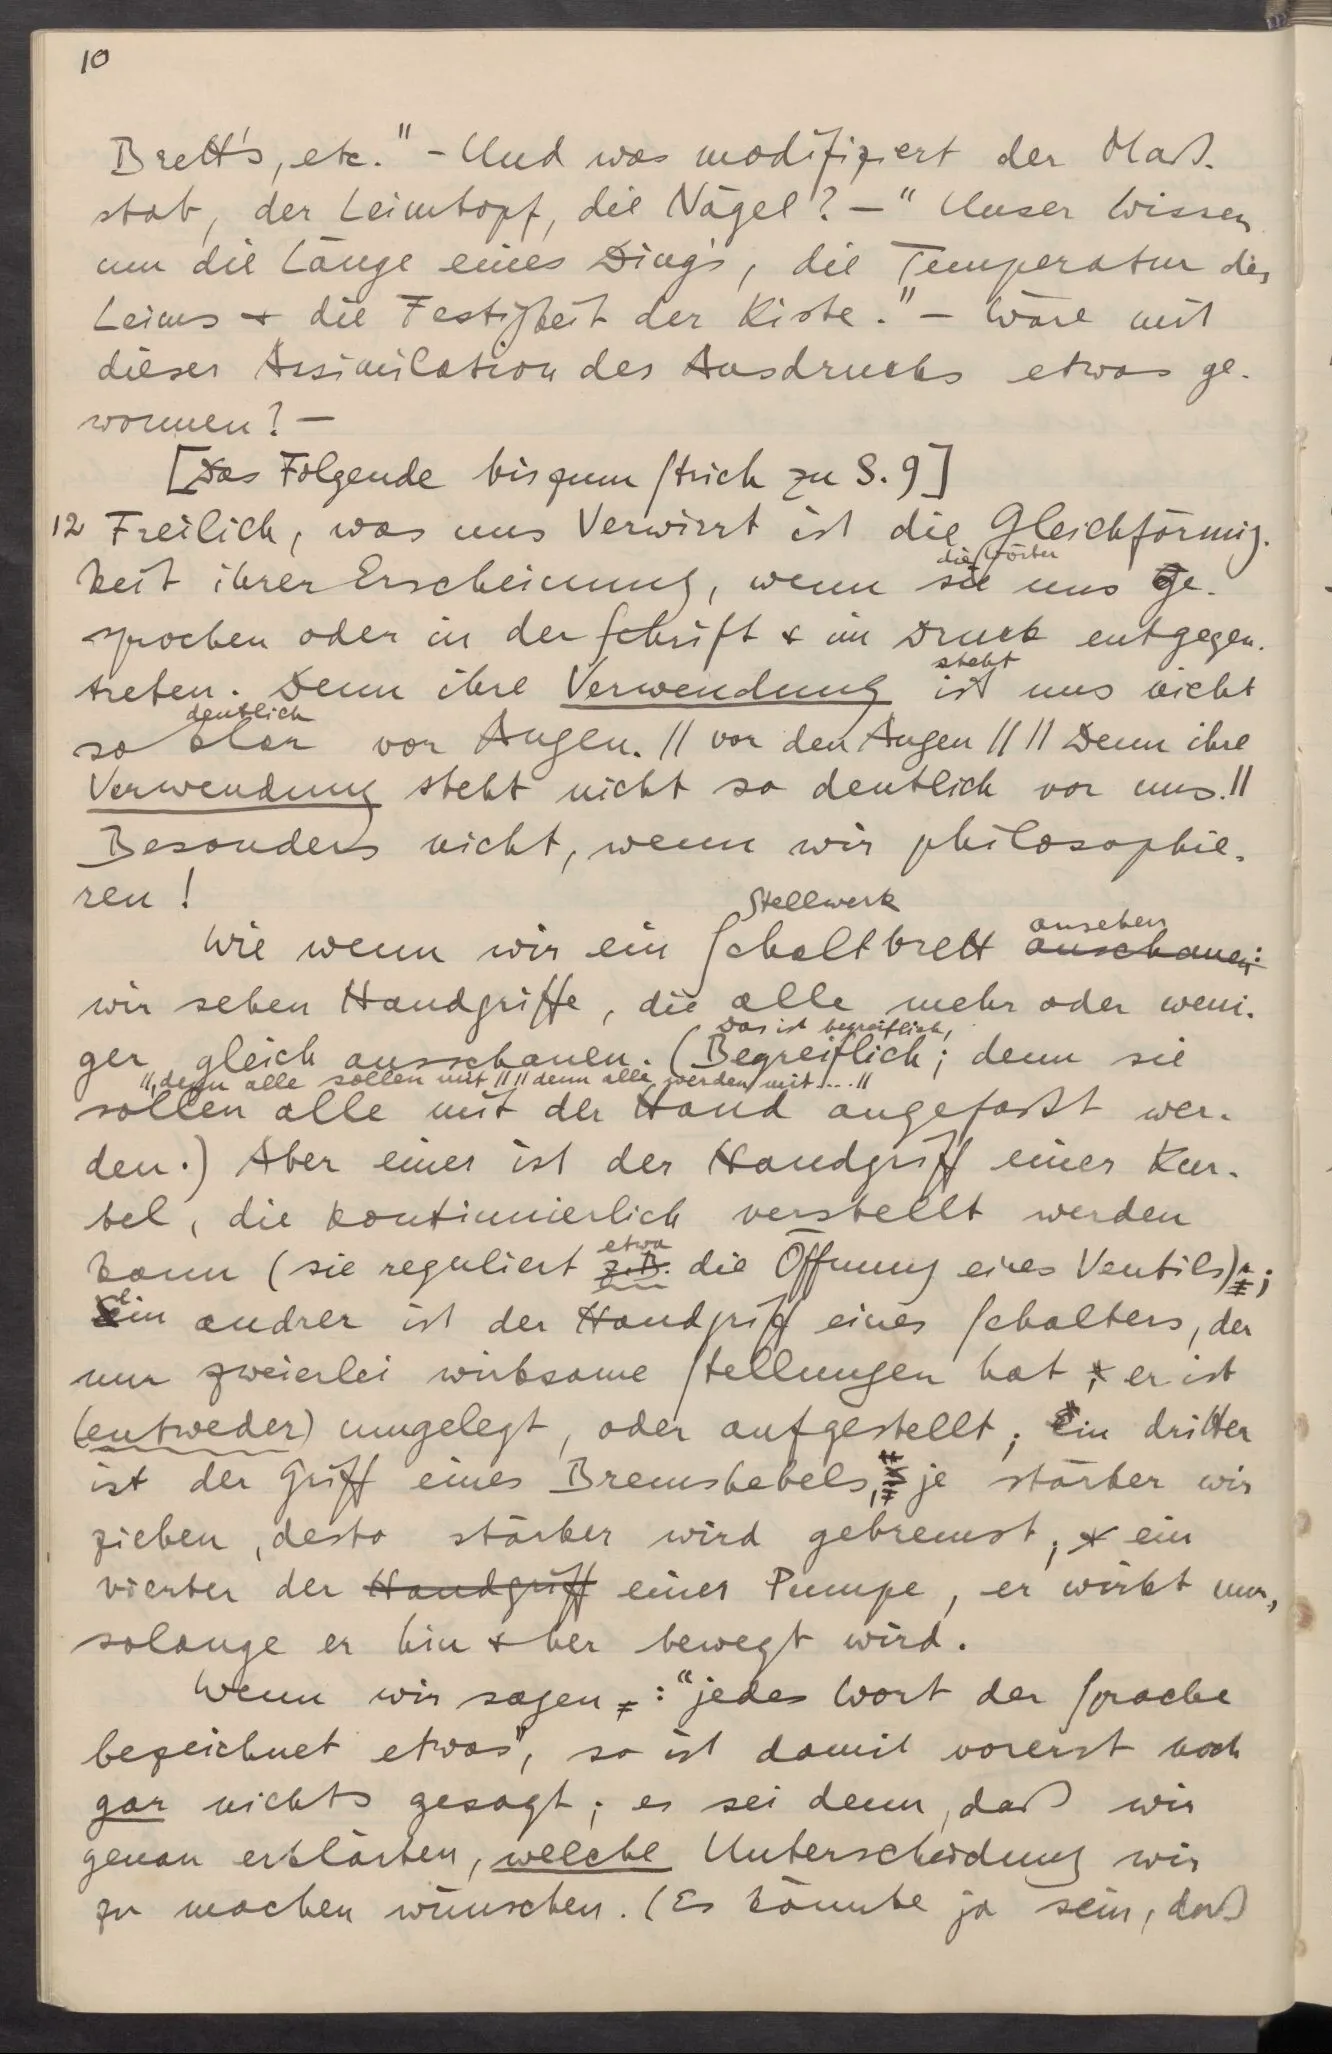 10
Brett's, etc." – Und was modifiziert der Maß-
stab, der Leimtopf, die Nägel? – "Unser Wissen
um die Länge eines Ding's, die Temperatur des
Leims & die Festigkeit der Kiste." – Wäre mit
dieser Assimilation des Ausdrucks etwas ge-
wonnen? –
[Das Folgende bis zum Strich zu S. 9]
12 Freilich, was uns Verwirrt ist die Gleichförmig-
die Wörter
keit ihrer Erscheinung, wenn sie uns ge-
sprochen oder in der Schrift & im Druck entgegen-
steht
treten. Denn ihre Verwendung ist uns nicht
deutlich
so klar vor Augen. // vor den Augen // // Denn ihre
Verwendung steht nicht so deutlich vor uns. //
Besonders nicht, wenn wir philosophie-
ren!
Stellwerk ansehen
Wie wenn wir ein Schaltbrett anschauen:
wir sehen Handgriffe, die alle mehr oder weni-
Das ist begreiflich,
ger gleich ausschauen. (Begreiflich; denn sie
//, denn alle sollen mit // // denn alle werden mit .... //
sollen alle mit der Hand angefaßt wer-
den.) Aber einer ist der Handgriff einer Kur-
bel, die kontinuierlich verstellt werden
etwa
kann (sie reguliert z.B. die Öffnung eines Ventils);
ein andrer ist der Handgriff eines Schalters, der
nur zweierlei wirksame Stellungen hat, er ist
(entweder) umgelegt, oder aufgestellt; ein dritter
ist der Griff eines Bremshebels, je stärker wir
ziehen, desto stärker wird gebremst; ein
vierter der Handgriff einer Pumpe, er wirkt nur,
solange er hin & her bewegt wird.
Wenn wir sagen: "jedes Wort der Sprache
bezeichnet etwas", so ist damit vorerst noch
gar nichts gesagt; es sei denn, daß wir
genau erklärten, welche Unterscheidung wir
zu machen wünschen. (Es könnte ja sein, daß